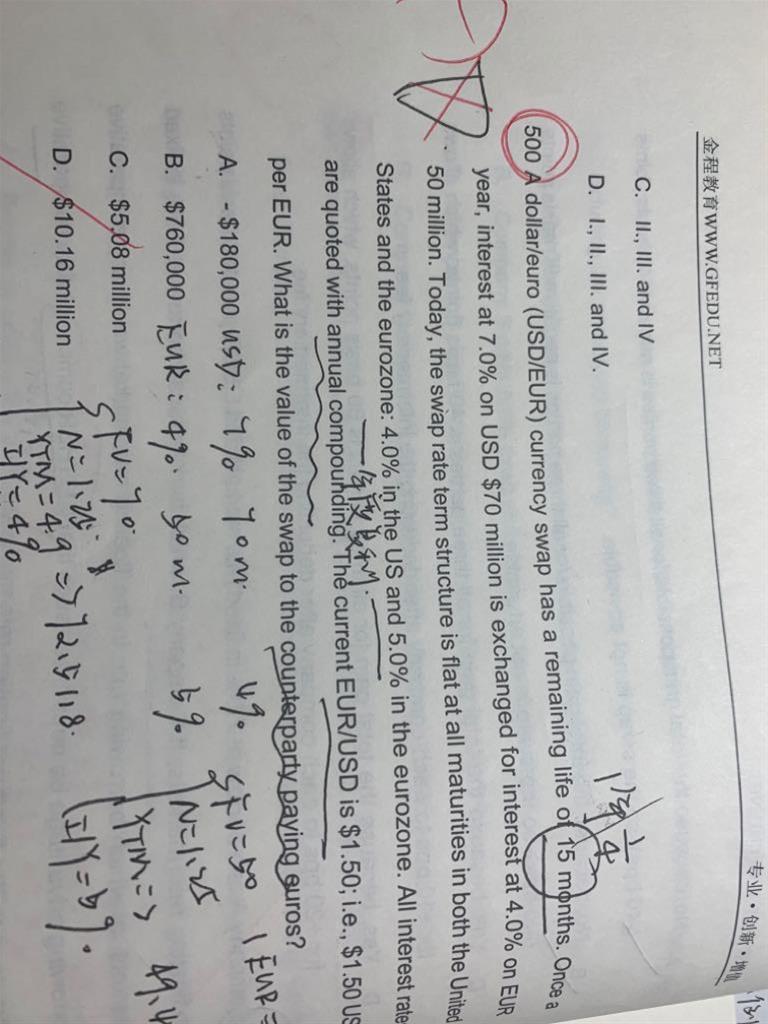 专业·创新·增值
金程教育WWW.GFEDU.NET
C. II., III. and IV
D. I., II., III. and IV.
500 A dollar/euro (USD/EUR) currency swap has a remaining life of 15 months. Once a
year, interest at 7.0% on USD $70 million is exchanged for interest at 4.0% on EUR
50 million. Today, the swap rate term structure is flat at all maturities in both the United
States and the eurozone: 4.0% in the US and 5.0% in the eurozone. All interest rate
are quoted with annual compounding. The current EUR/USD is $1.50; i.e., $1.50 US
per EUR. What is the value of the swap to the counterparty paying euros?
A. - $180,000
B. $760,000
C. $5.08 million
D. $10.16 million
1/4
年度复利.
USD: 7% 70m. 4%
EUR: 4% 50m. 5%
1 EUR =
FV=70
N=1.25
=> 72.5118
IY=4%
FV=50
N=1.25
=> 49.4
IY=5%